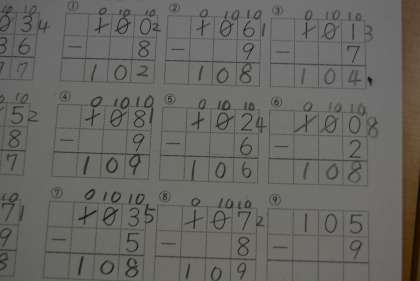 ① ② ③
10 0 10 10 0 10 10 0 10 10
0 3 4 1 0 0 2 1 0 6 1 1 0 1 3
3 6 − 8 − 9 − 7
7 7 1 0 2 1 0 8 1 0 4
④ ⑤ ⑥
10 0 10 10 0 10 10 0 10 10
5 2 1 0 8 1 1 0 2 4 1 0 0 8
8 − 9 − 6 − 2
7 1 0 9 1 0 6 1 0 8
⑦ ⑧ ⑨
10 0 10 10 0 10 10
7 1 1 0 3 5 1 0 7 2 1 0 5
9 − 5 − 8 − 9
8 1 0 8 1 0 9